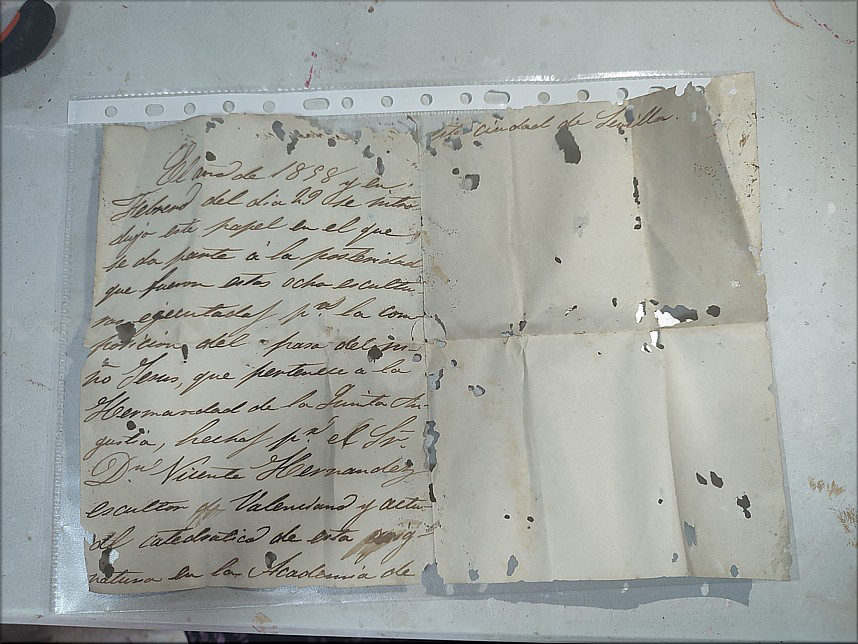 El año de 1858 y en
Febrero del dia 29 se intro
dujo este papel en el que
se da parte á la posteridad
que fueron estas ocho escultu
ras ejecutadas pª la com
posicion del paso del ni
ño Jesus, que pertenece a la
Hermandad de la Quinta An
gustia, hechas pr el Sr.
Dn Vicente Hernandez
escultor Valenciano y actu
al catedratico de esta asig
natura en la Academia de
esta ciudad de Sevilla.